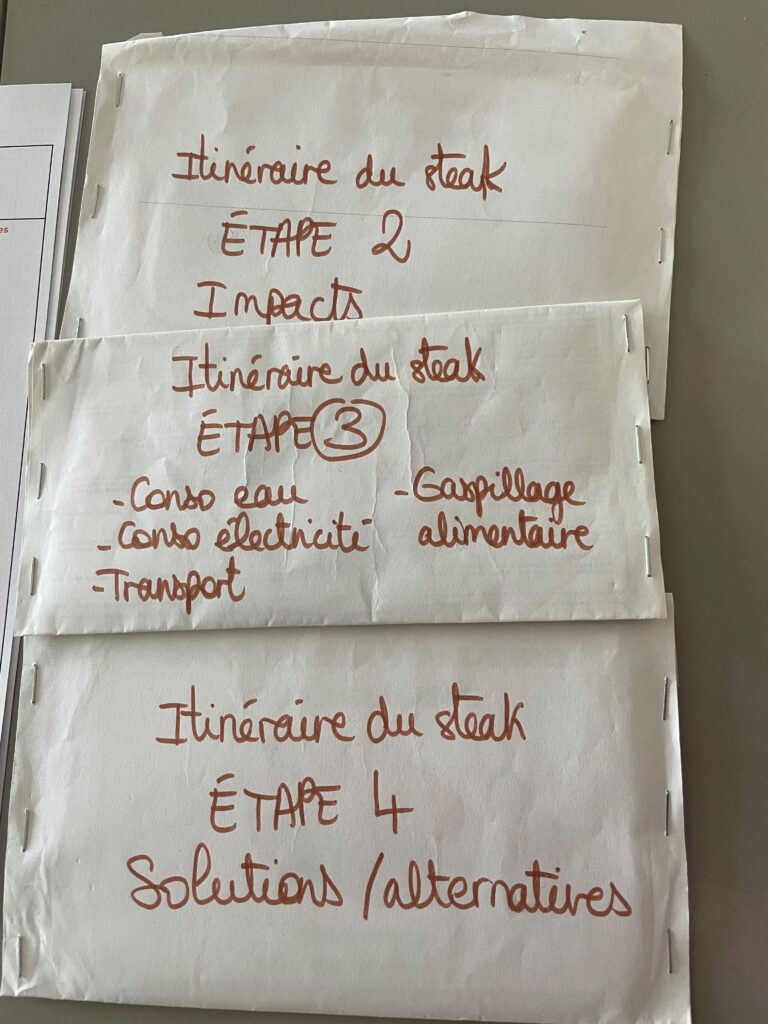 es
Itinéraire du steak
ÉTAPE 2
Impacts
Itinéraire du steak
ÉTAPE 3
- Conso eau
- Conso électricité
- Transport
- Gaspillage
alimentaire
Itinéraire du steak
ÉTAPE 4
Solutions / alternatives